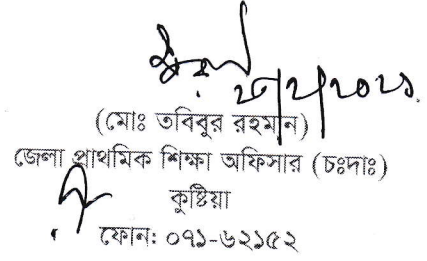 (মোঃ তবিবুর রহমান)
জেলা প্রাথমিক শিক্ষা অফিসার (চঃদাঃ)
কুষ্টিয়া
ফোন: ০৭১-৬২১৫২